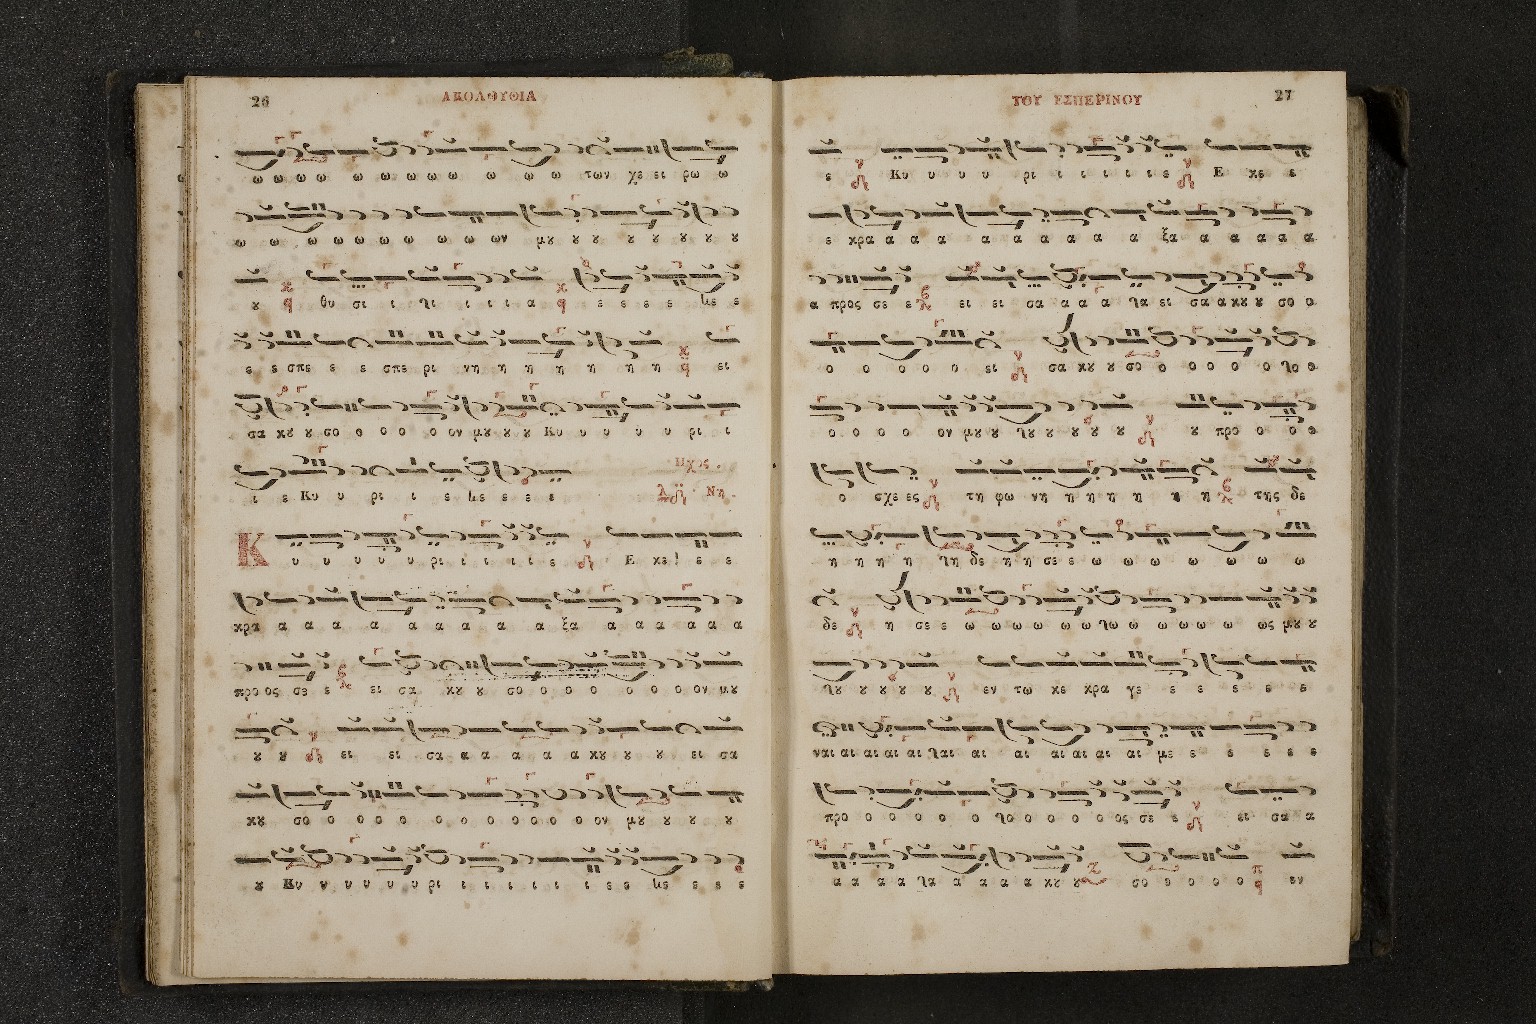 26
ΑΚΟΛȢΘΙΑ
ω ω ω ω ω ω ω ω ω ω ω ω των χε ει ρω ω
ω ω ω ω ω ω ω ω ω ων μȣ ȣ ȣ ȣ ȣ ȣ ȣ ȣ
ȣ θυ σι ι λι ι ι ι α ε ε ε ε με ε
ε ε σπε ε ε σπε ρι νη η η η η η η ει
σα κȣ ȣ σο ο ο ο ο ον μȣ ȣ ȣ Κυ υ υ υ υ ρι ι
ι ε Κυ υ ρι ι ε με ε ε ε
Ηχος . Νη .
Κ υ υ υ υ υ ρι ι ι ι ε Ε κε ε ε
κρα α α α α α α α α α ξα α α α α α α
προ ος σε ε ει σα κȣ ȣ σο ο ο ο ο ο ο ον μȣ
ȣ ȣ ει ει σα α α α α α κȣ ȣ ȣ ει σα
κȣ σο ο ο ο ο ο ο ο ο ο ο ο ον μȣ ȣ ȣ ȣ
ȣ Κυ υ υ υ υ υ ρι ι ι ι ι ι ι ε ε με ε ε ε
27
ΤΟΥ ΕΣΠΕΡΙΝΟΥ
ε Κυ υ υ υ ρι ι ι ι ι ε Ε κε ε
ε κρα α α α α α α α α α ξα α α α α α
α προς σε ε ει ει σα α α α λα ει σα α κȣ ȣ σο ο
ο ο ο ο ο ει σα κȣ ȣ σο ο ο ο ο ο λο ο
ο ο ο ο ον μȣ ȣ λȣ ȣ ȣ ȣ ȣ ȣ προ ο ο ο
ο σχε ες τη φω νη η η η η η η της δε
η η η η λη δε η η σε ε ω ω ω ω ω ω ω ω
δε η σε ε ω ω ω ω ω ω λω ω ω ω ω ω ως μȣ ȣ
λȣ ȣ ȣ ȣ ȣ εν τω κε κρα γε ε ε ε ε ε
ναι αι αι αι αι λαι αι αι αι αι αι αι με ε ε ε ε ε
προ ο ο ο ο ο λο ο ο ο ο ος σε ε ει σα α
α α α α λα α α α α κȣ ȣ σο ο ο ο ο εν